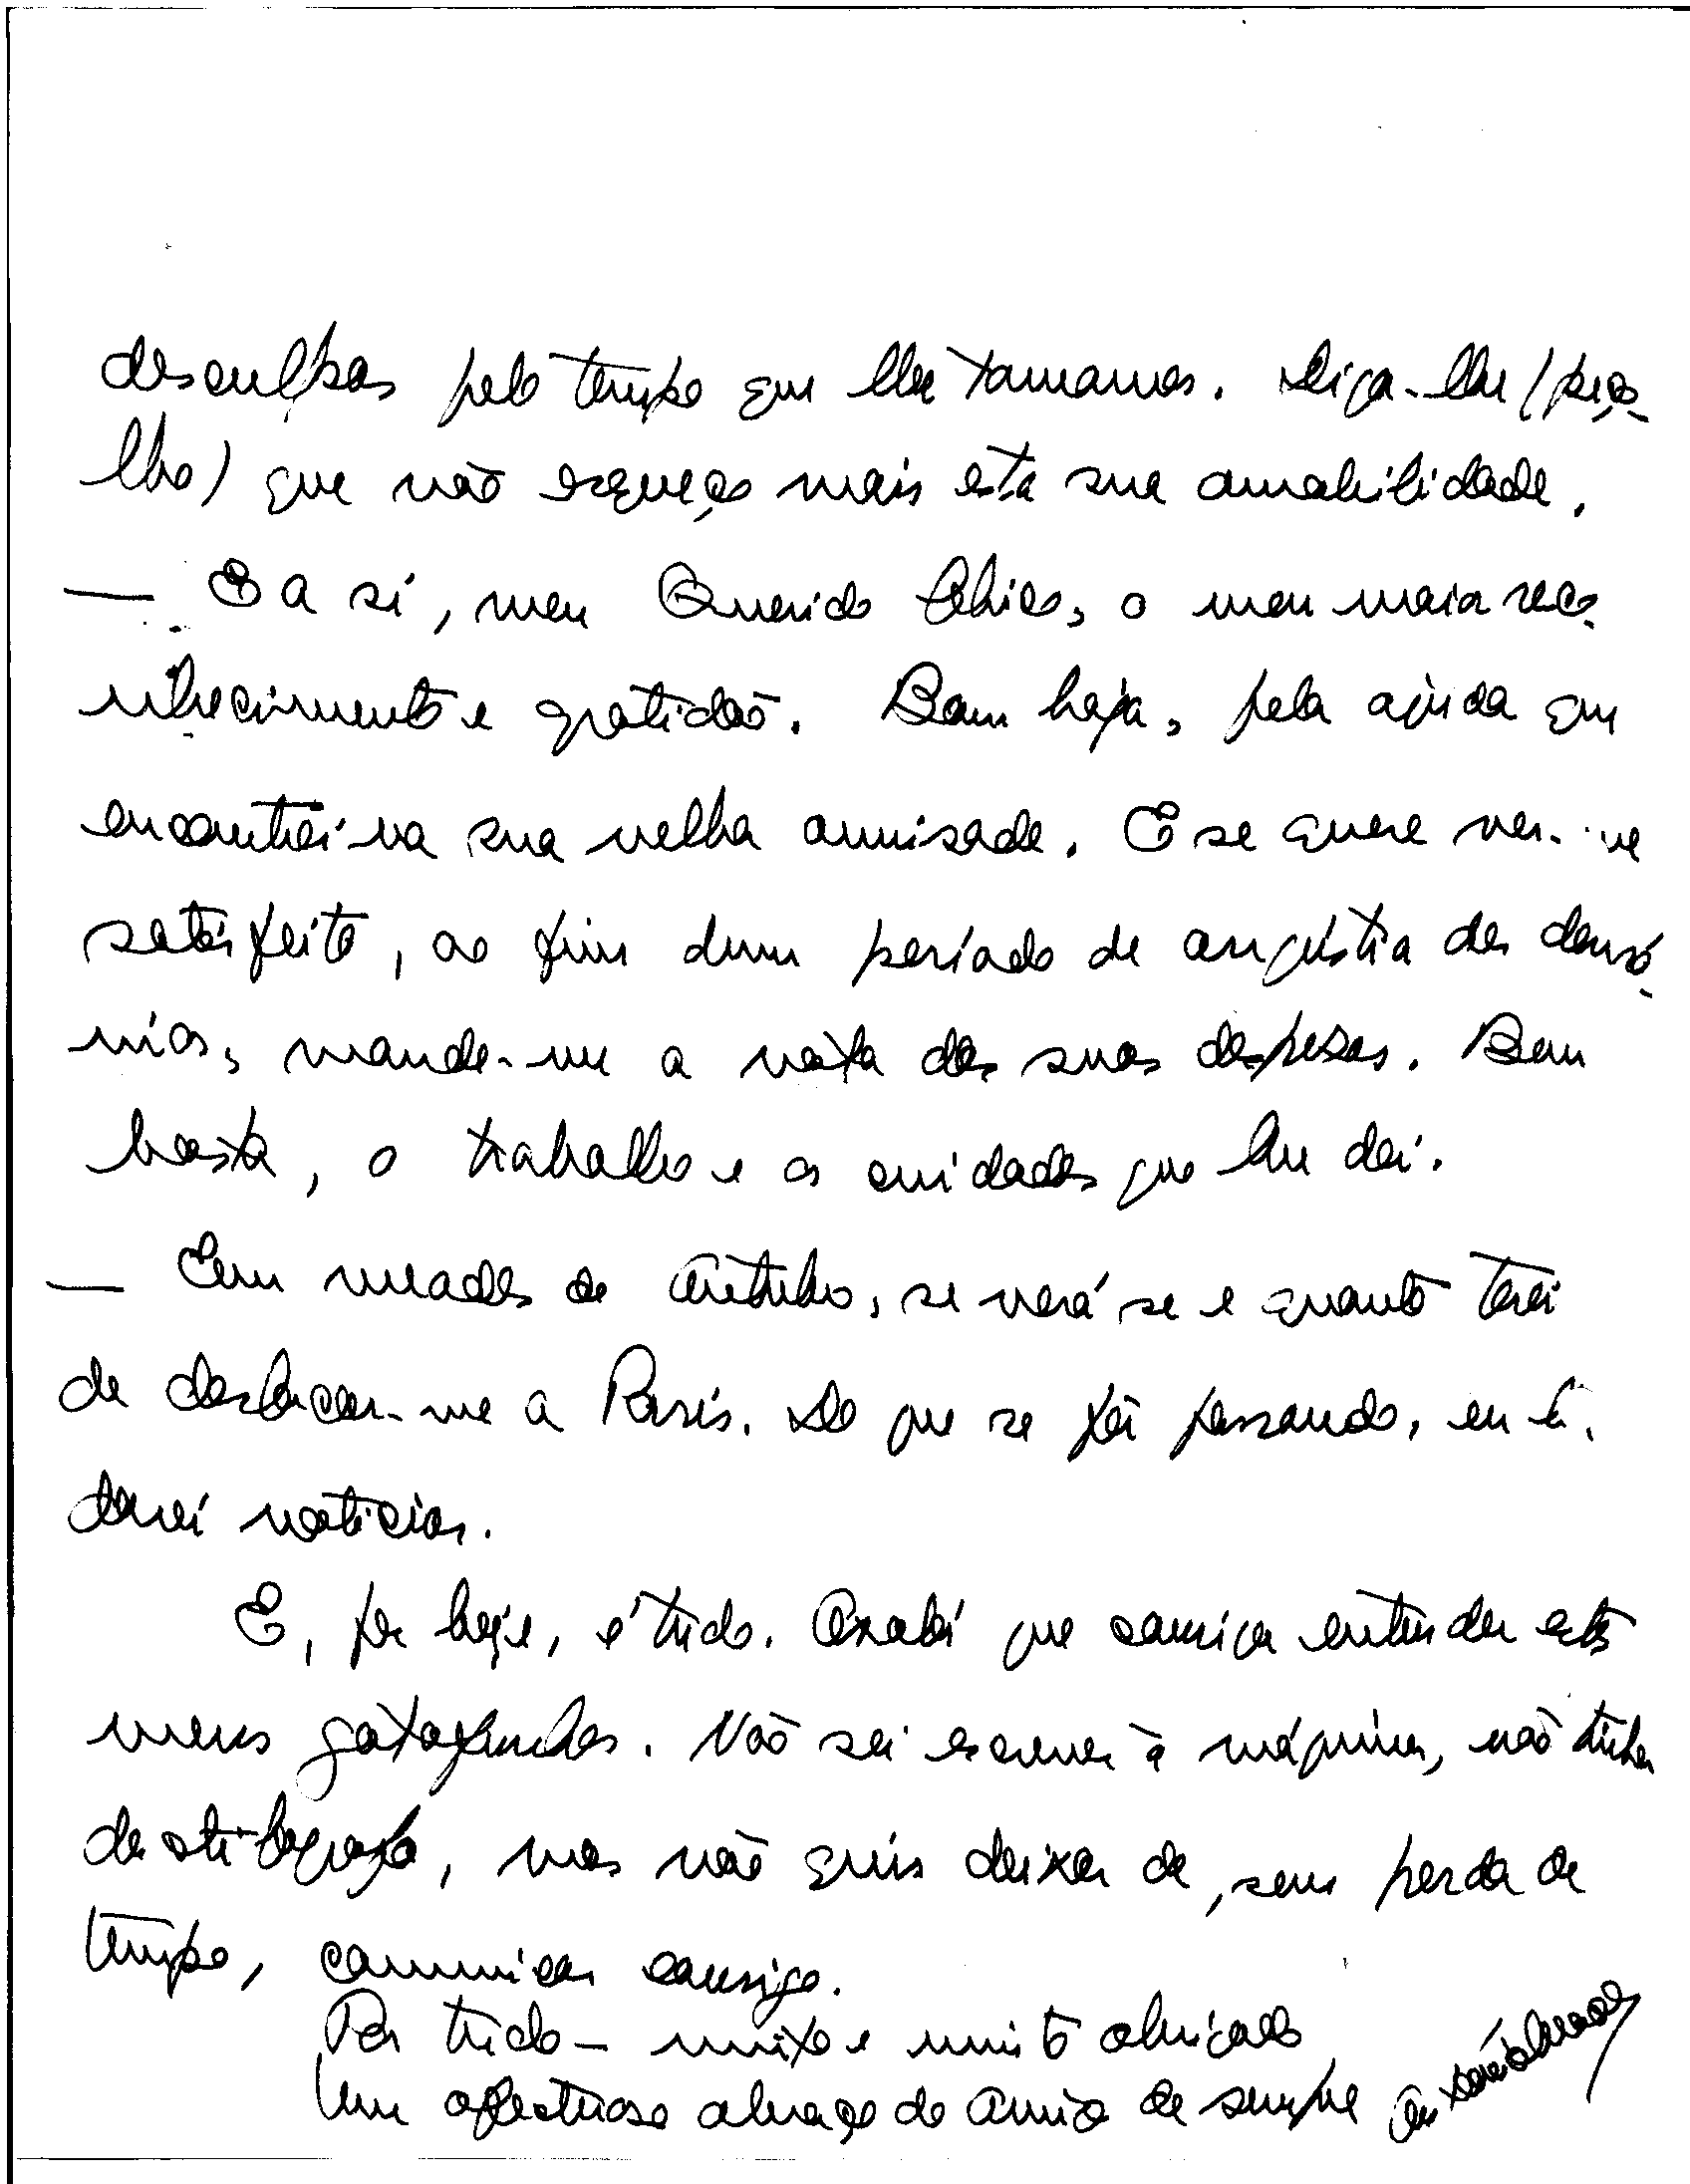 desculpas pelo tempo que lhe tomamos. Diga-lhe (peço-
lho) que não esqueço mais esta sua amabilidade.
— E a si, meu Querido Chico, o meu maior reco-
nhecimento e gratidão. Bem haja, pela ajuda que
encontrei na sua velha amizade. E se quere ver-me
satisfeito, ao fim dum período de angústia dos demó-
nios, mande-me a nota das suas despesas. Bem
basta, o trabalho e os cuidados que lhe dei.
— Em meados de Outubro, se verá se e quanto terei
de deslocar-me a Paris. Do que se fôr passando, eu lhe
darei notícias.
E, por hoje, é tudo. Oxalá que consiga entender estes
meus gatafunhos. Não sei escrever à máquina, não tinha
dactilógrafo, mas não quis deixar de, sem perda de
tempo, comunicar consigo.
Por tudo — muito e muito obrigado
Um afectuoso abraço do amigo de sempre